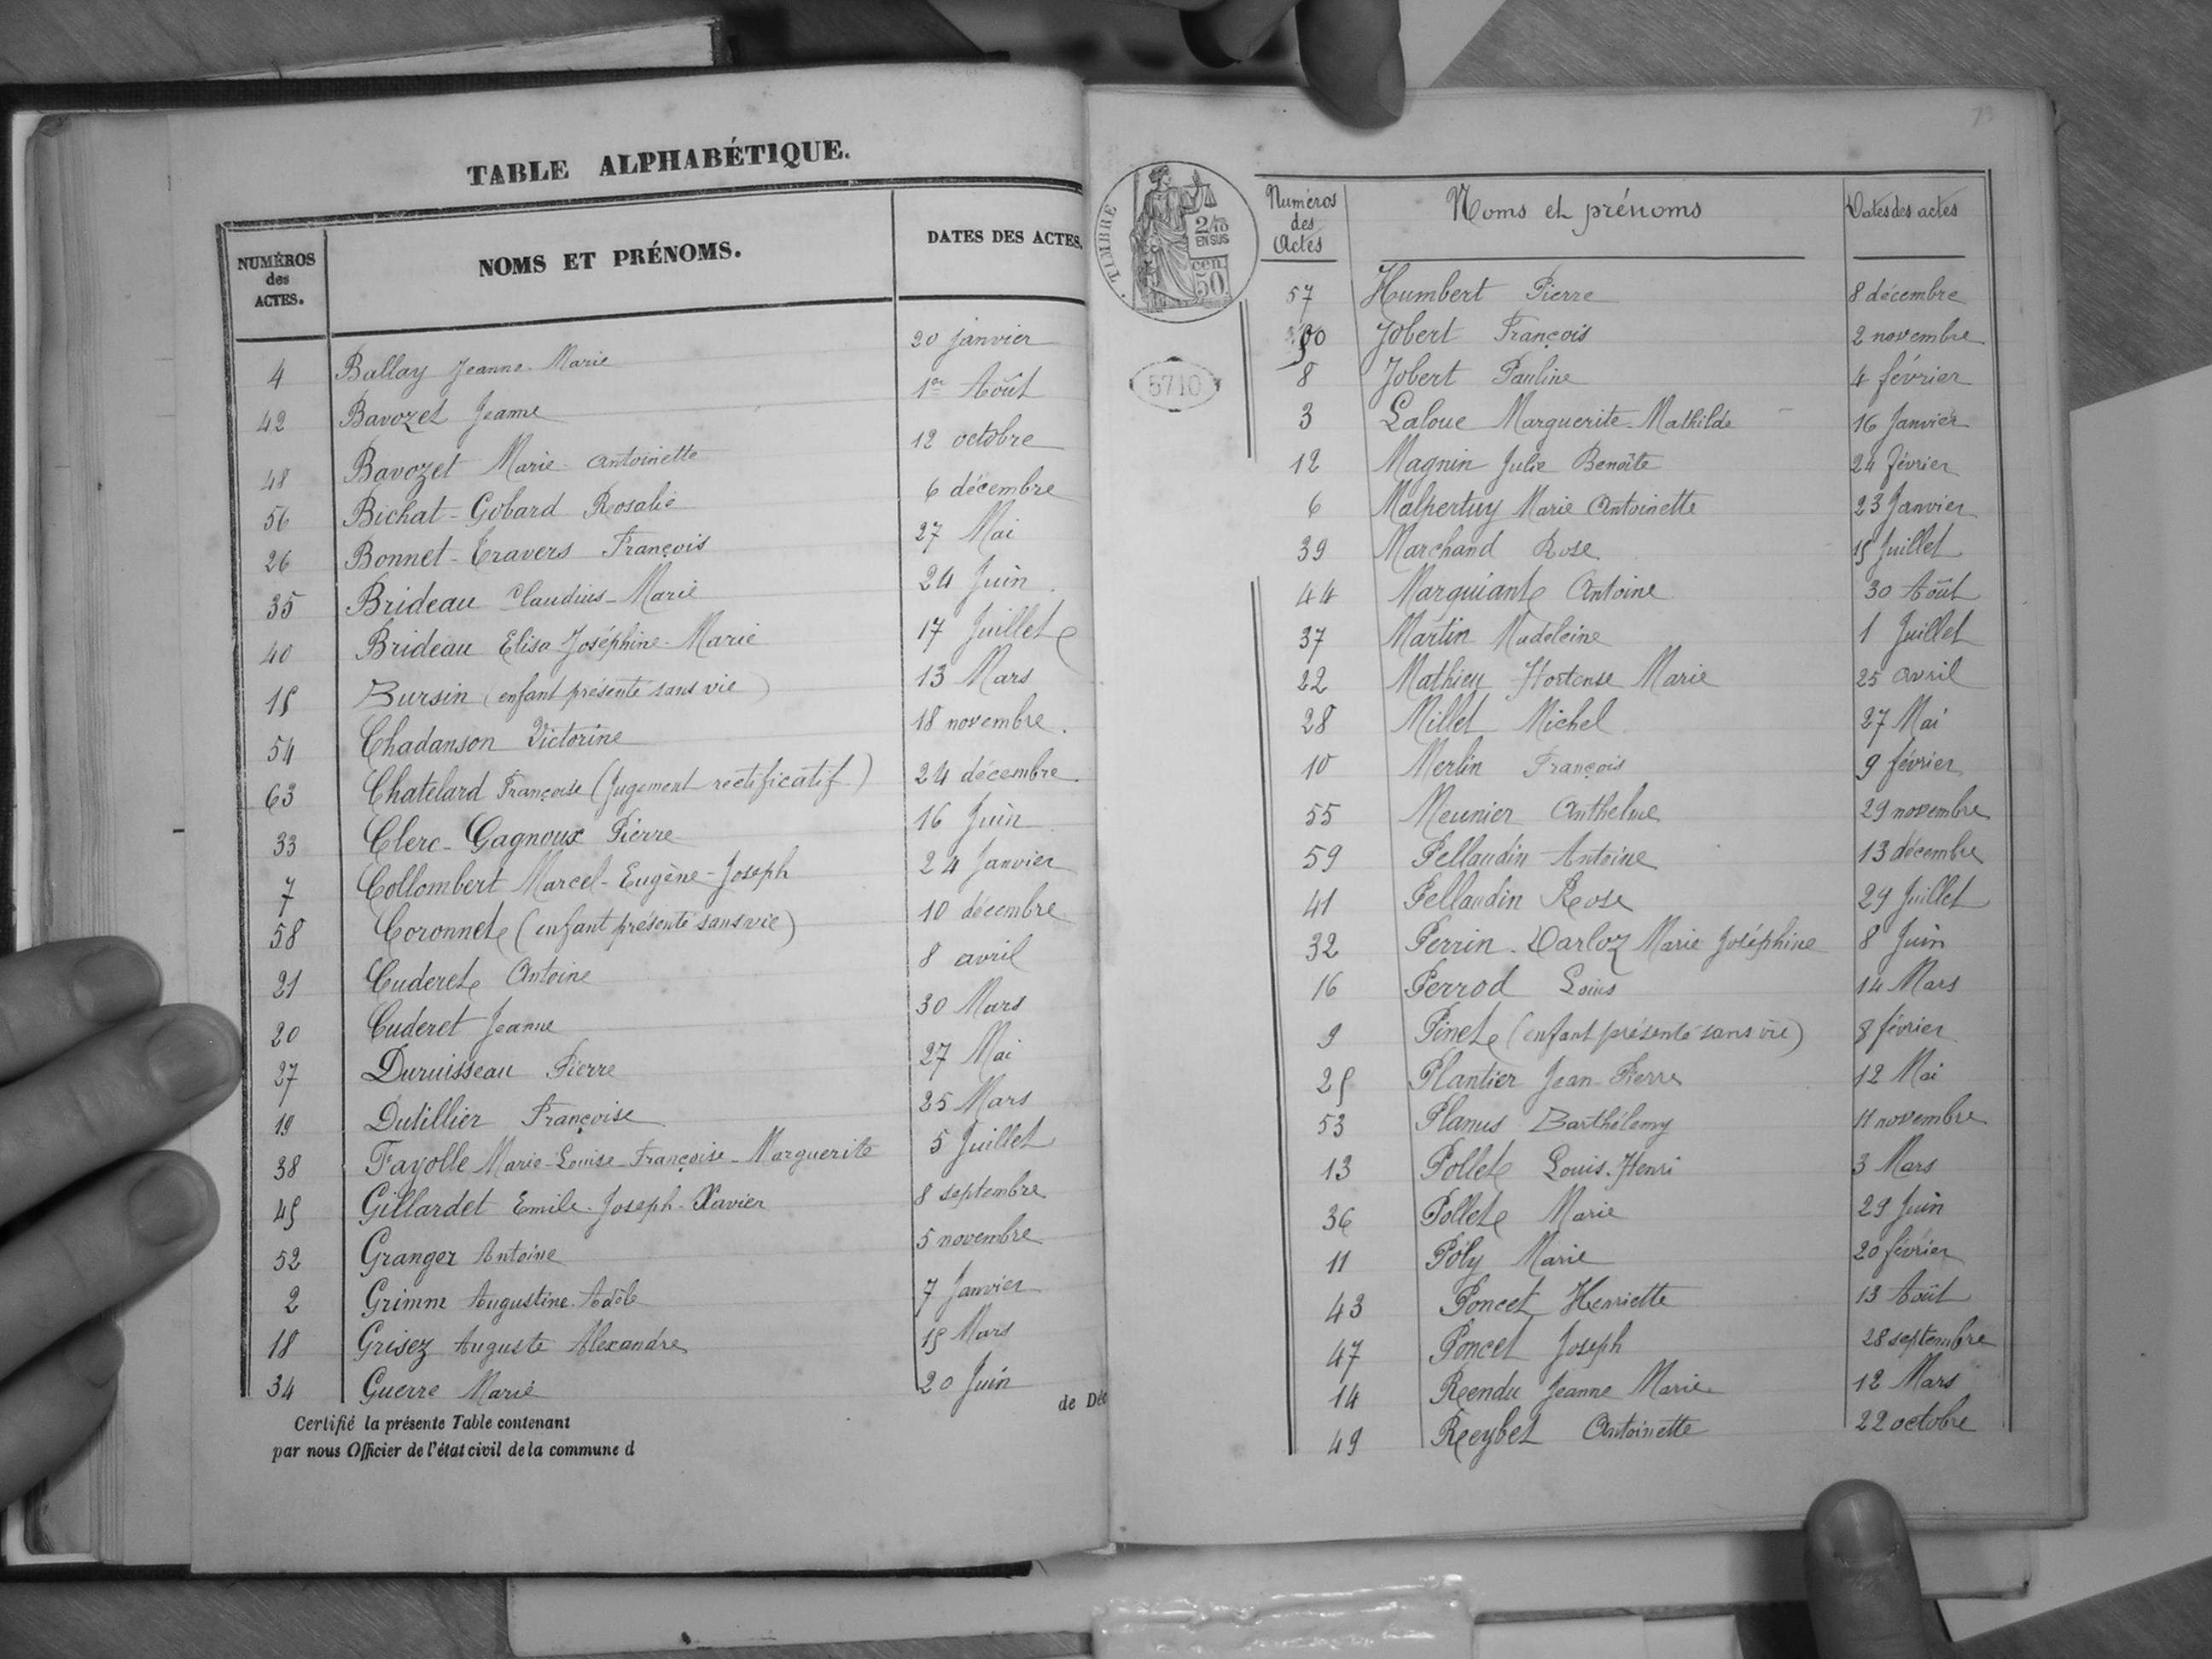 TABLE ALPHABÉTIQUE.
NUMÉROS des ACTES. NOMS ET PRÉNOMS. DATES DES ACTES.
4 Ballay Jeanne-Marie 20 Janvier
42 Bavozet Jeanne 1er Août
48 Bavozet Marie-Antoinette 12 octobre
56 Bichat-Gobard Rosalie 6 décembre
26 Bonnet-Travers François 27 Mai
35 Brideau Claudius-Marie 24 Juin
40 Brideau Elisa-Joséphine-Marie 17 Juillet
15 Bursin (enfant présenté sans vie) 13 Mars
54 Chadanson Victorine 18 novembre.
63 Chatelard Françoise (Jugement rectificatif) 24 décembre.
33 Clerc-Gagnoux Pierre 16 Juin
7 Collombert Marcel-Eugène-Joseph 24 Janvier
58 Coronnet (enfant présenté sans vie) 10 décembre
21 Cuderet Antoine 8 avril
20 Cuderet Jeanne 30 Mars
27 Duruisseau Pierre 27 Mai
19 Dutillier Françoise 25 Mars
38 Fayolle Marie-Louise-Françoise-Marguerite 5 Juillet
45 Gillardet Emile-Joseph-Xavier 8 septembre
52 Granger Antoine 5 novembre
2 Grimm Augustine-Adèle 7 Janvier
18 Grisez Auguste Alexandre 15 Mars
34 Guerre Marie 20 Juin
Certifié la présente Table contenant de Déc
par nous Officier de l'état civil de la commune d
TIMBRE
2/10
EN SUS
50 cen.
5710
Numéros des Actes Noms et prénoms Dates des actes
57 Humbert Pierre 8 décembre
50 Jobert François 2 novembre
8 Jobert Pauline 4 février
3 Laloue Marguerite-Mathilde 16 Janvier
12 Magnin Julie Benoîte 24 février
6 Malpertuy Marie Antoinette 23 Janvier
39 Marchand Rose 15 Juillet
44 Marguiant Antoine 30 Août
37 Martin Madeleine 1 Juillet
22 Mathieu Hortense Marie 25 avril
28 Millet Michel 27 Mai
10 Merlin François 9 février
55 Meunier Anthelme 29 novembre
59 Pellaudin Antoine 13 décembre
41 Pellaudin Rose 29 Juillet
32 Perrin-Darloz Marie Joséphine 8 Juin
16 Perrod Louis 14 Mars
9 Pinet (enfant présenté sans vie) 8 février
25 Plantier Jean-Pierre 12 Mai
53 Planus Barthélemy 11 novembre
13 Pollet Louis-Henri 3 Mars
36 Pollet Marie 29 Juin
11 Poly Marie 20 février
43 Poncet Henriette 13 Août
47 Poncet Joseph 28 septembre
14 Rendu Jeanne Marie 12 Mars
49 Reybet Antoinette 22 octobre